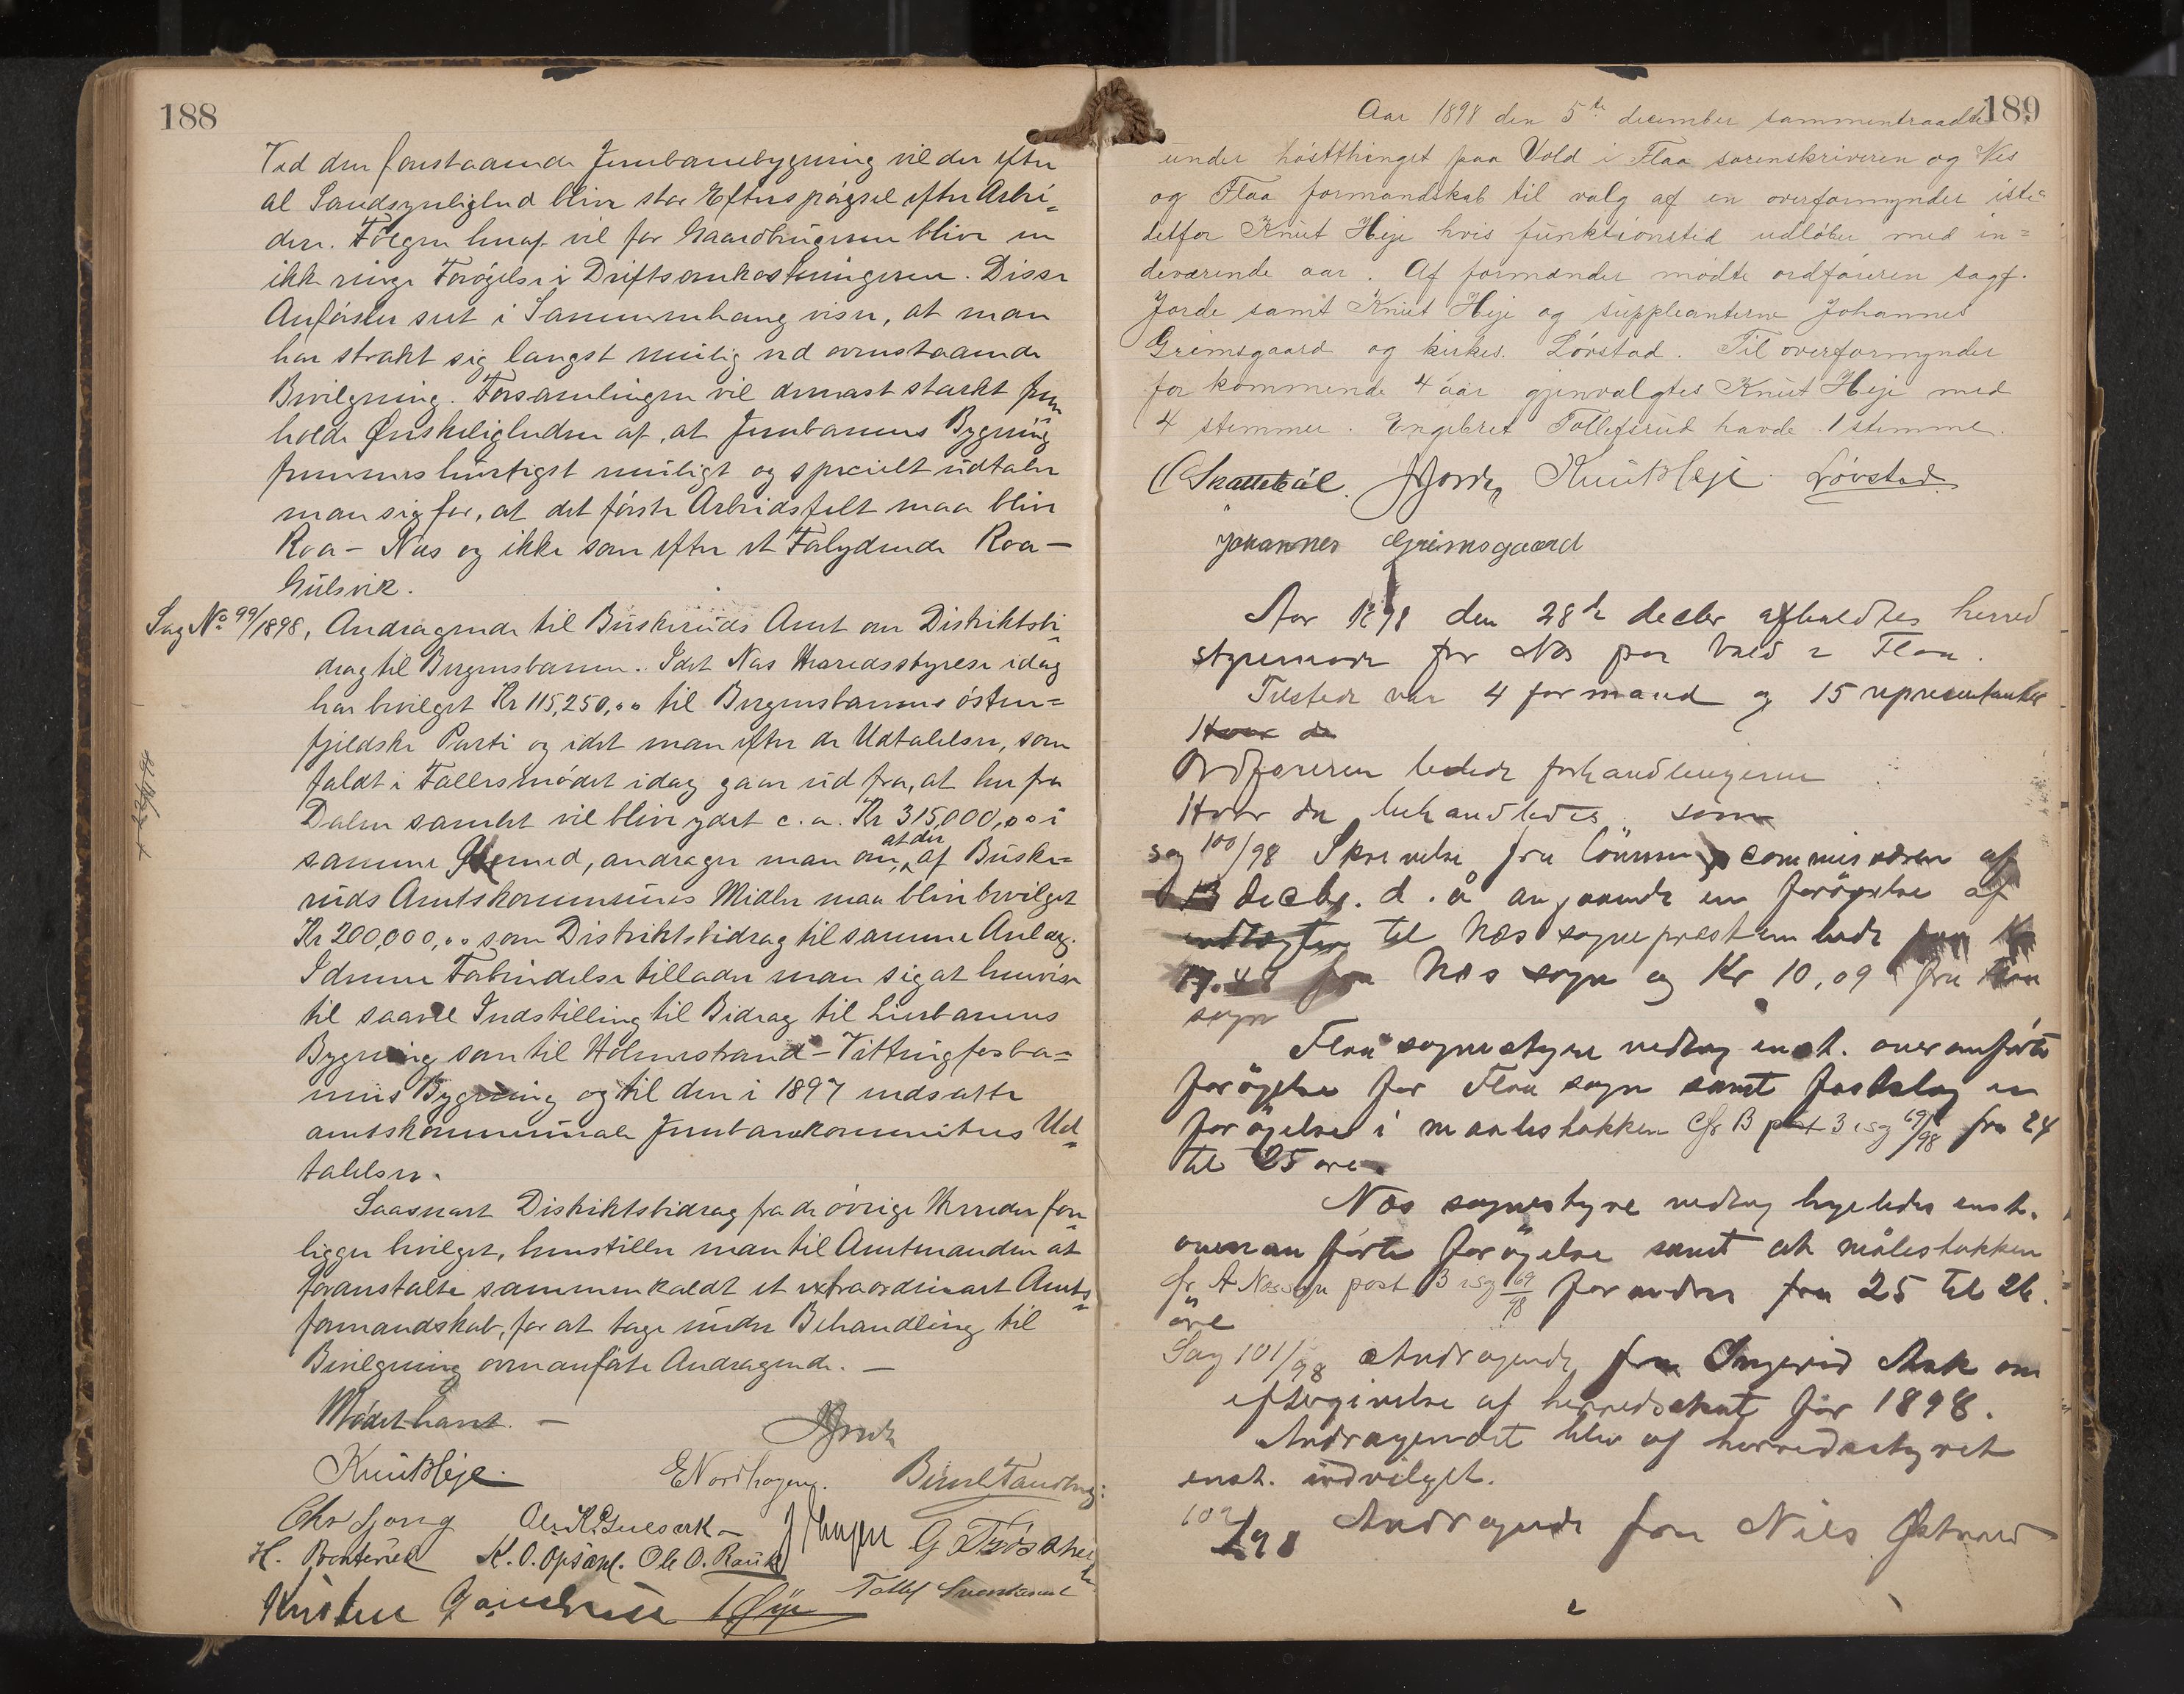 188
Ved den forestaaende Jernbanebygning vil der efter
al Sandsynlighed blive stor Efterspørgsel efter Arbei-
dere. Følgen heraf vil for Gaardbrugerne blive en
ikke ringe Forøgelse i Driftsomkostningerne. Disse
Anførsler seet i Sammenhæng viser, at man
har strakt sig længst mulig ved ovenstaaende
Bevilgning. Forsamlingen vil dernæst stærkt frem
holde Ønskeligheden af, at Jernbanens Bygning
fremmes hurtigst muligt og specielt udtaler
man sig for, at det første Arbeidsfelt maa blive
Roa - Næs og ikke som efter et Forlydende Roa -
Gulsvik.
Sag No 99/1898, Andragende til Buskeruds Amt om Distriktsbi-
drag til Bergensbanen. Idet Næs Herredsstyrelse idag
har bevilget Kr 115,250,00 til Bergensbanens østen=
fjeldske Parti og idet man efter de Udtalelser, som
faldt i Fællesmødet idag gaar ud fra, at her fra
Dalen samlet vil blive ydet c. a. Kr 315,000,00 i
samme Øiemed, andrager man om, at der af Buske=
ruds Amtskommunes Midler maa blive bevilget
Kr 200,000,00 som Distriktsbidrag til samme Anlæg.
I denne Forbindelse tillader man sig at henvise
til saavel Indstilling til Bidrag til Lierbanens
Bygning som til Holmestrand - Vittingfosba=
nens Bygning og til den i 1897 nedsatte
amtskommunale Jernbanekommites Ud-
talelser.
Saasnart Distriktsbidrag fra de øvrige Herreder fore-
ligger bevilget, henstiller man til Amtmanden at
foranstalte sammenkaldt et extraordinært Amts-
formandskab, for at tage under Behandling til
Bevilgning ovenanførte Andragende. —
Mødet hævet. —
Knut Heje E Nordhagen.
K. O. Opsahl. Ole O.
189
Aar 1898 den 5te december sammentraadte
under høstthinget paa Vold i Flaa sorenskriveren og Nes
og Flaa formandskab til valg af en overformynder iste=
detfor Knut Heje hvis funktionstid udløber med in=
deværende aar. Af formænder mødte ordføreren sagf.
Jorde samt Knut Heje og suppleanterne Johannes
Grimsgaard og kirkes. Løvstad. Til overformynder
for kommende 4 aar gjenvalgtes Knut Heje med
4 stemmer. Engebret Tollefsrud havde 1 stemme.
C Skattebøl. Jorde Knut Heje Løvstad
Johannes Grimsgaard
Aar 1898 den 28de decbr afholdtes herred
styremøde for Nes paa Vold i Flaa.
Tilstede var 4 formænd og 15 repræsentanter
Hvor de
Ordføreren ledede forhandlingerne
Hvor da behandledes som
sag 100/98 Skrivelse fra commissæren af
13 decbr. d. å angaaende en forøgelse af
indtægten til Næs sogneprestembede fra Kr
17.48 fra Næs sogn og Kr 10,09 fra Flaa
sogn
Flaa sognestyre vedtog enst. ovenanførte
forøgelse for Flaa sogn samt fastslog en
forøgelse i maalestokken cfr B post 3 i sag 69/98 fra 24
til 25 øre.
Næs sognestyre vedtog ligeledes enst.
ovenanførte forøgelse samt at målestokken
cfr A Næs sogn post 3 i sag 69/98 forandres fra 25 til 26.
øre
Sag 101/98 Andragende fra Ingerid Aak om
eftergivelse af herredsskat for 1898.
Andragendet blev af herredsstyret
enst. indvilget.
102/98 Andragende fra Nils